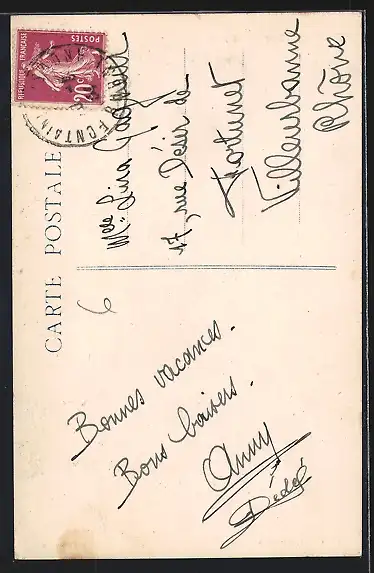 RÉPUBLIQUE FRANÇAISE
POSTES
20c
CARTE POSTALE
Melle Lina
17, rue Désir de
Fortunet
Villeurbanne
Rhône
6
Bonnes vacances.
Bons baisers.
Anny
Dédé